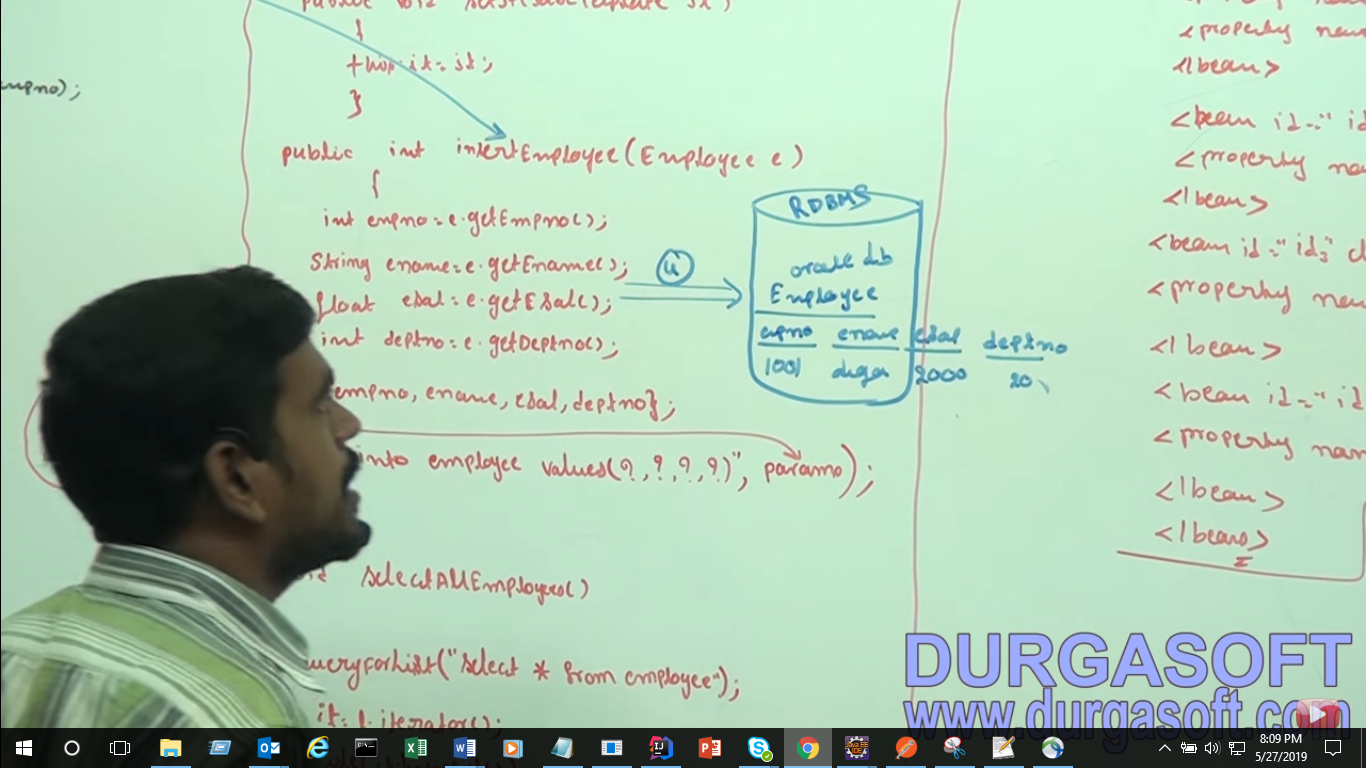 public void
{
this.jt=jt;
}
empno);
public int insertEmployee(Employee e)
{
int empno=e.getEmpno();
String ename=e.getEname();
float esal=e.getESal();
int deptno=e.getDeptno();
empno, ename, esal, deptno};
into employee values(?,?,?,?)", params);
selectAllEmployees()
queryForList("select * from employee");
it=l.iterator();
RDBMS
oracle db
Employee
empno ename esal deptno
1001 durga 2000 20
<property name
</bean>
<bean id="id
<property name
</bean>
<bean id="id3" cl
<property name
</bean>
<bean id="id
<property nam
</bean>
</beans>
DURGASOFT
www.durgasoft.com
8:09 PM
5/27/2019